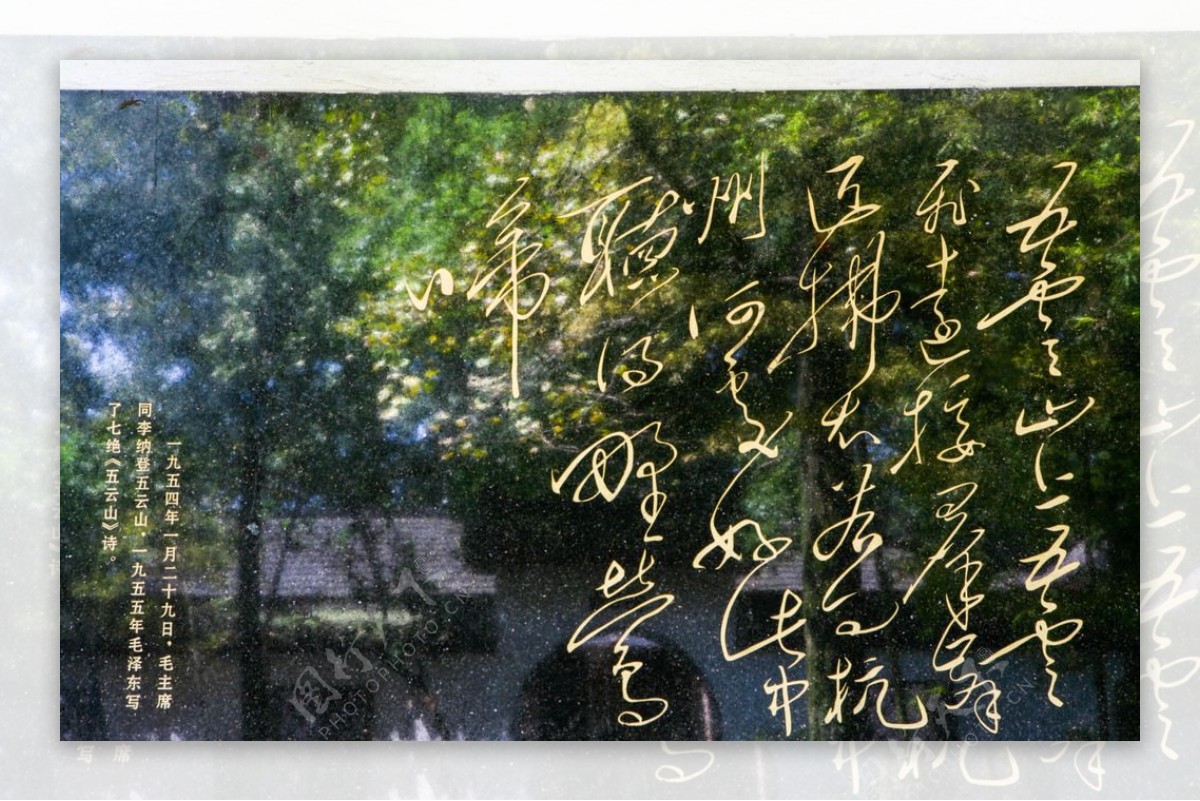 五雲山上五雲
飛遠接群峰
近拂堤若问杭
州何处好此中
聽得野鶯
啼
一九五四年一月二十九日，毛主席
同李纳登五云山，一九五五年毛泽东写
了七绝《五云山》诗。